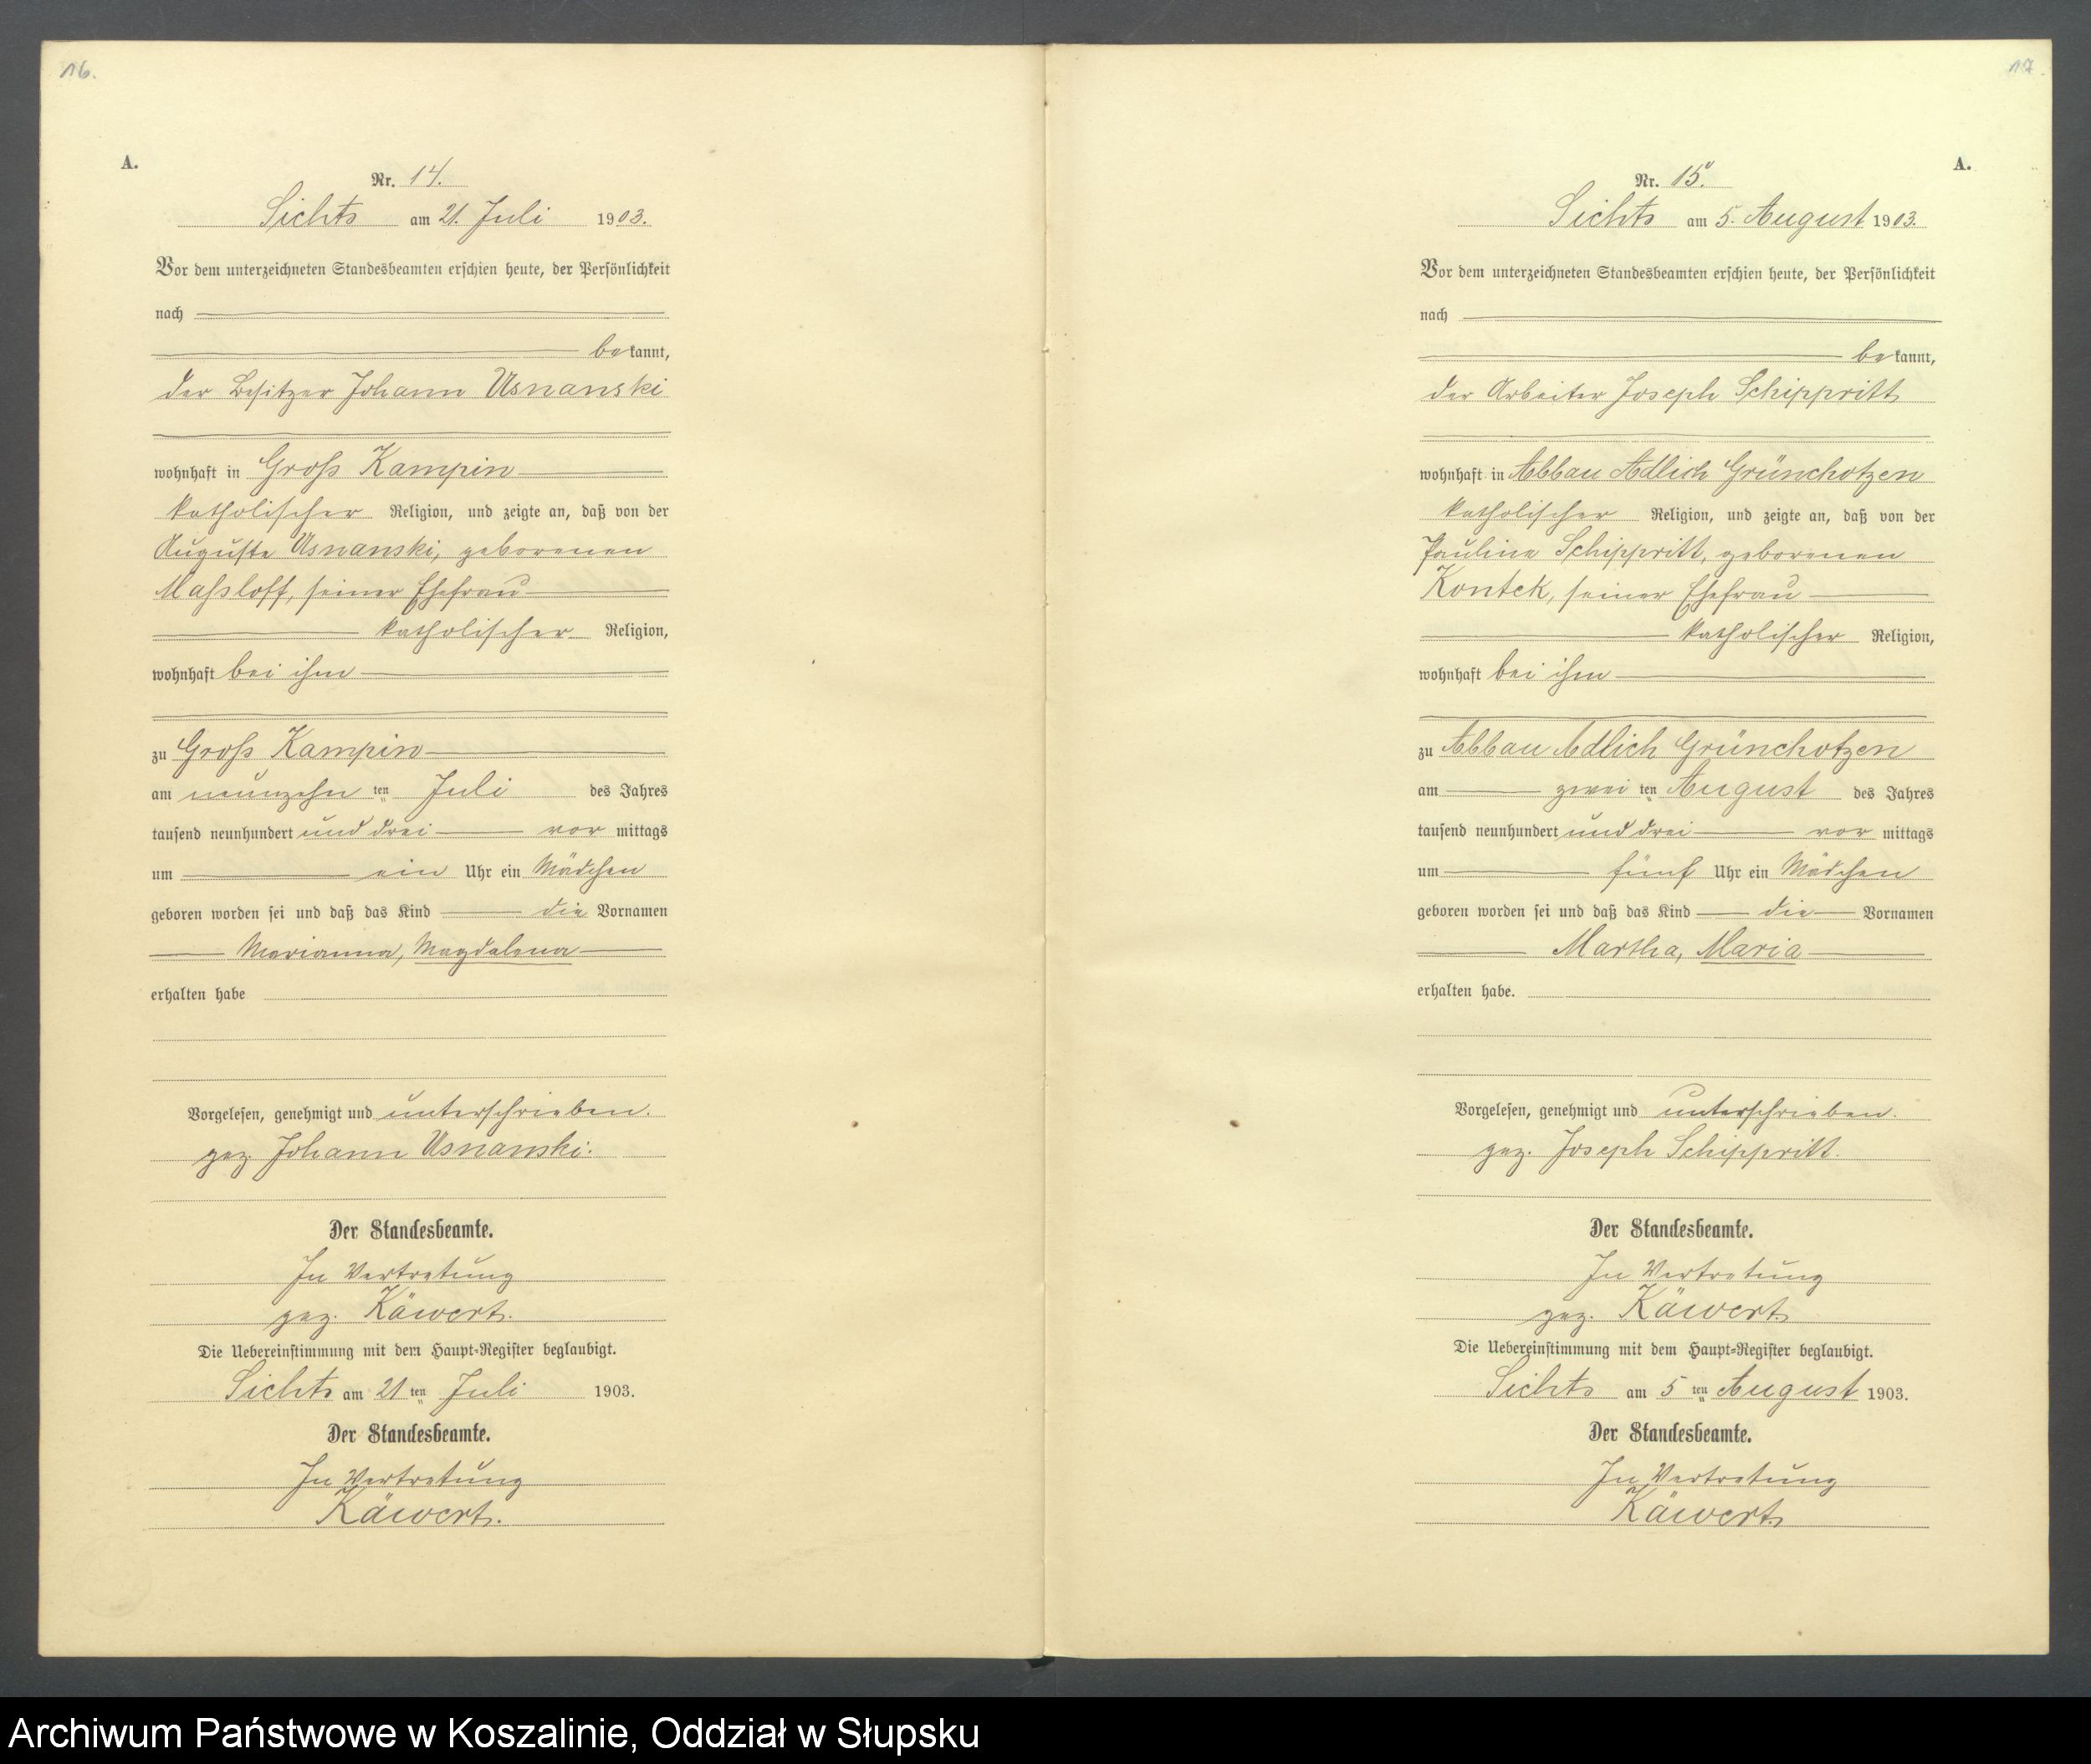 16.
A.
Nr. 14.
Sichts am 21. Juli 1903.
Vor dem unterzeichneten Standesbeamten erschien heute, der Persönlichkeit
nach
bekannt,
der Besitzer Johann Usnanski
wohnhaft in Groß Kampin
katholischer Religion, und zeigte an, daß von der
Auguste Usnanski, geborenen
Maßloff, seiner Ehefrau
katholischer Religion,
wohnhaft bei ihm
zu Groß Kampin
am neunzehn ten Juli des Jahres
tausend neunhundert und drei vor mittags
um ein Uhr ein Mädchen
geboren worden sei und daß das Kind die Vornamen
Marianna, Magdalena
erhalten habe
Vorgelesen, genehmigt und unterschrieben.
gez. Johann Usnanski.
Der Standesbeamte.
In Vertretung
gez. Käwert.
Die Uebereinstimmung mit dem Haupt-Register beglaubigt.
Sichts am 21 ten Juli 1903.
Der Standesbeamte.
In Vertretung
Käwert.
17.
A.
Nr. 15.
Sichts am 5. August 1903.
Vor dem unterzeichneten Standesbeamten erschien heute, der Persönlichkeit
nach
bekannt,
der Arbeiter Joseph Schippritt
wohnhaft in Abbau Adlich Grünchotzen
katholischer Religion, und zeigte an, daß von der
Pauline Schippritt, geborenen
Kontek, seiner Ehefrau
katholischer Religion,
wohnhaft bei ihm
zu Abbau Adlich Grünchotzen
am zwei ten August des Jahres
tausend neunhundert und drei vor mittags
um fünf Uhr ein Mädchen
geboren worden sei und daß das Kind die Vornamen
Martha, Maria
erhalten habe.
Vorgelesen, genehmigt und unterschrieben.
gez. Joseph Schippritt.
Der Standesbeamte.
In Vertretung
gez. Käwert.
Die Uebereinstimmung mit dem Haupt-Register beglaubigt.
Sichts am 5 ten August 1903.
Der Standesbeamte.
In Vertretung
Käwert.
Archiwum Państwowe w Koszalinie, Oddział w Słupsku